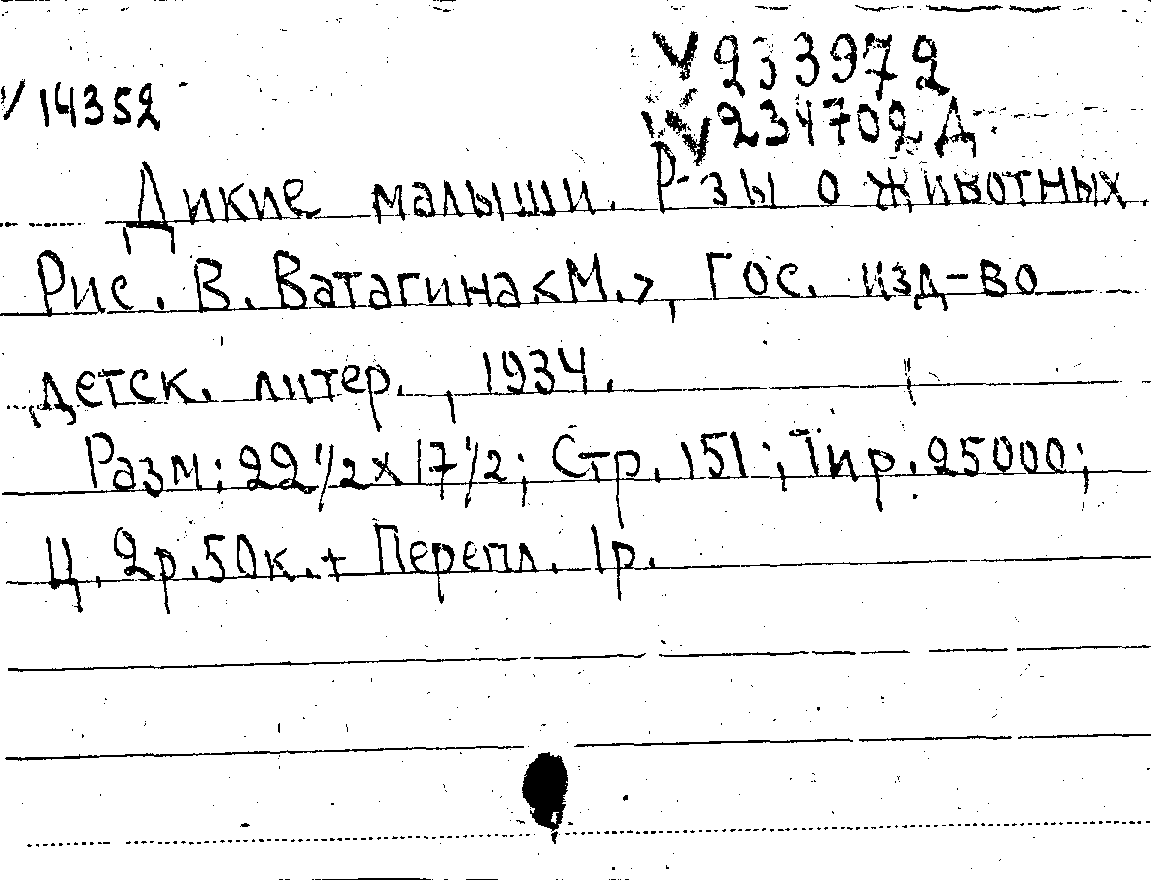 V 233972
V 14352
V 234702 Д.
Дикие малыши. Р-зы о животных.
Рис. В. Ватагина <М.>, Гос. изд-во
детск. литер., 1934.
Разм: 22 1/2 x 17 1/2; Стр. 151; Тир. 25000;
Ц. 2р. 50к. + Перепл. 1р.